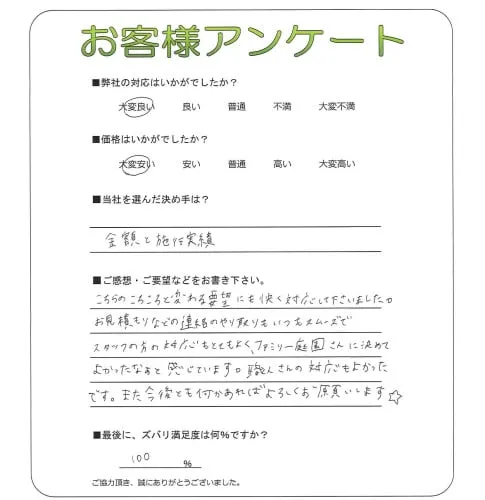 お客様アンケート
■弊社の対応はいかがでしたか？
大変良い 良い 普通 不満 大変不満
■価格はいかがでしたか？
大変安い 安い 普通 高い 大変高い
■当社を選んだ決め手は？
金額と施行実績
■ご感想・ご要望などをお書き下さい。
こちらのころころと変わる要望にも快く対応して下さいました。
お見積もりなどの連絡のやり取りもいつもスムーズで
スタッフの方の対応もとてもよく、ファミリー庭園さんに決めて
よかったなぁと感じています。職人さんの対応もよかった
です。また今後とも何かあればよろしくお願いします☆
■最後に、ズバリ満足度は何%ですか？
100 %
ご協力頂き、誠にありがとうございました。